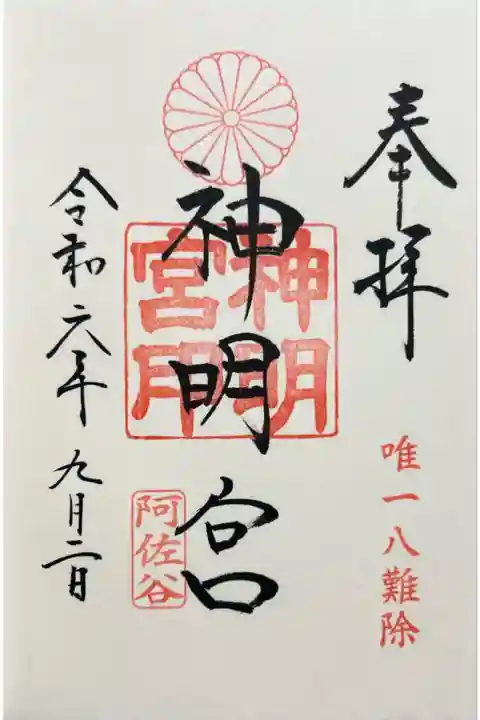 奉拝
唯一八難除
神明宮
神明
宮印
阿佐谷
令和六年 九月二日